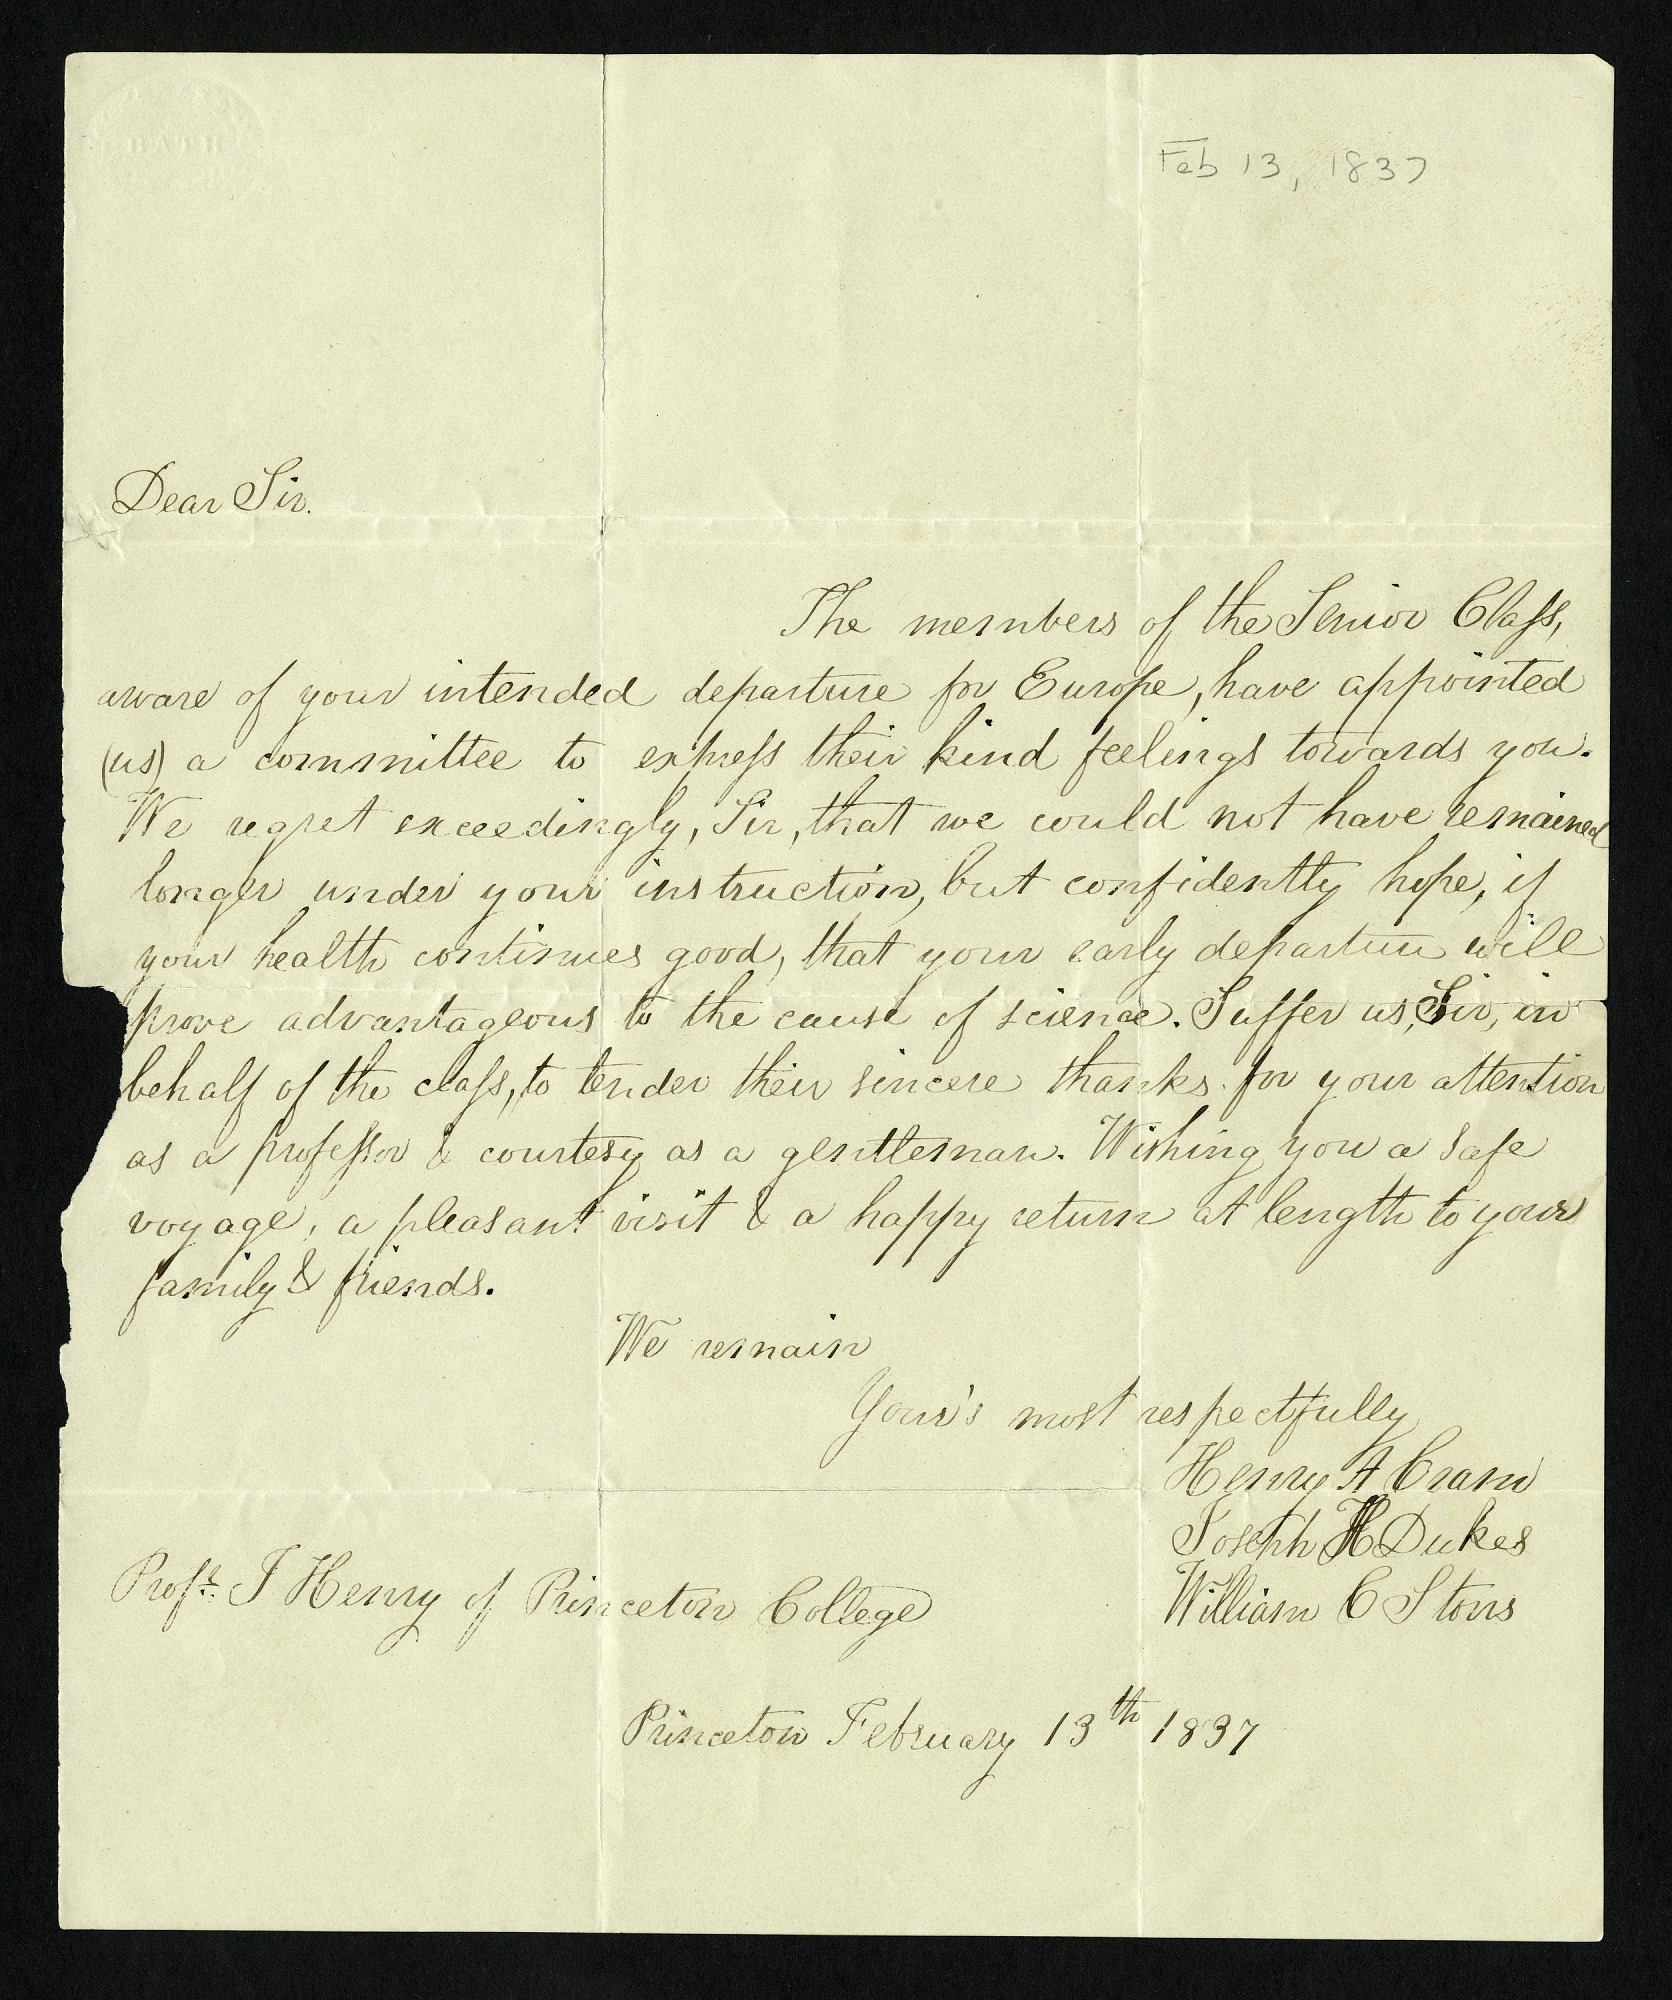 Feb 13, 1837
Dear Sir.
The members of the Senior Claſs,
aware of your intended departure for Europe, have appointed
(us) a committee to expreſs their kind feelings towards you.
We regret exceedingly, Sir, that we could not have remained
longer under your instruction, but confidently hope, if
your health continues good, that your early departure will
prove advantageous to the cause of science. Suffer us, Sir, in
behalf of the claſs, to tender their sincere thanks for your attention
as a profeſsor & courtesy as a gentleman. Wishing you a safe
voyage, a pleasant visit & a happy return at length to your
family & friends.
We remain
Your's most respectfully
Henry A Cram
Joseph H Dukes
William C Stons
Profr. J Henry of Princeton College
Princeton February 13th 1837